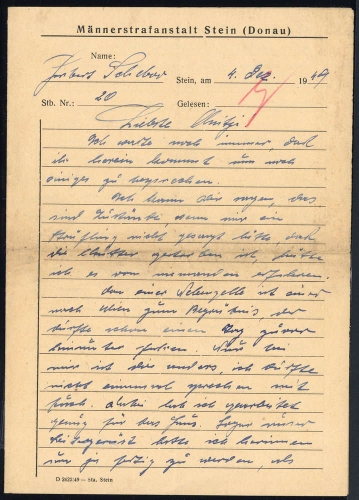 Männerstrafanstalt Stein (Donau)
Name:
Herbert
Stein, am 4. Dez. 1949
Stb. Nr.: 20 Gelesen:
Liebste
Ich warte noch immer, daß
du herein kommst um noch
einiges zu besprechen.
Ich kann dir sagen, das
sind Zustände, wenn mir ein
Häftling nicht gesagt hätte, daß
die Mutter gestorben ist, hätte
ich es von niemanden erfahren.
Von einer Nebenzelle ist einer
nach Wien zum Begräbnis der
durfte schon einen Tag zuvor
hinunter fahren. Nur bei
mir ist dies anders, ich durfte
nicht einmal sprechen mit
Euch. Dabei hab ich gearbeitet
genug für das Haus. Sogar
hatte ich
um ja fertig zu werden, als
D 2422/49 — Sta. Stein